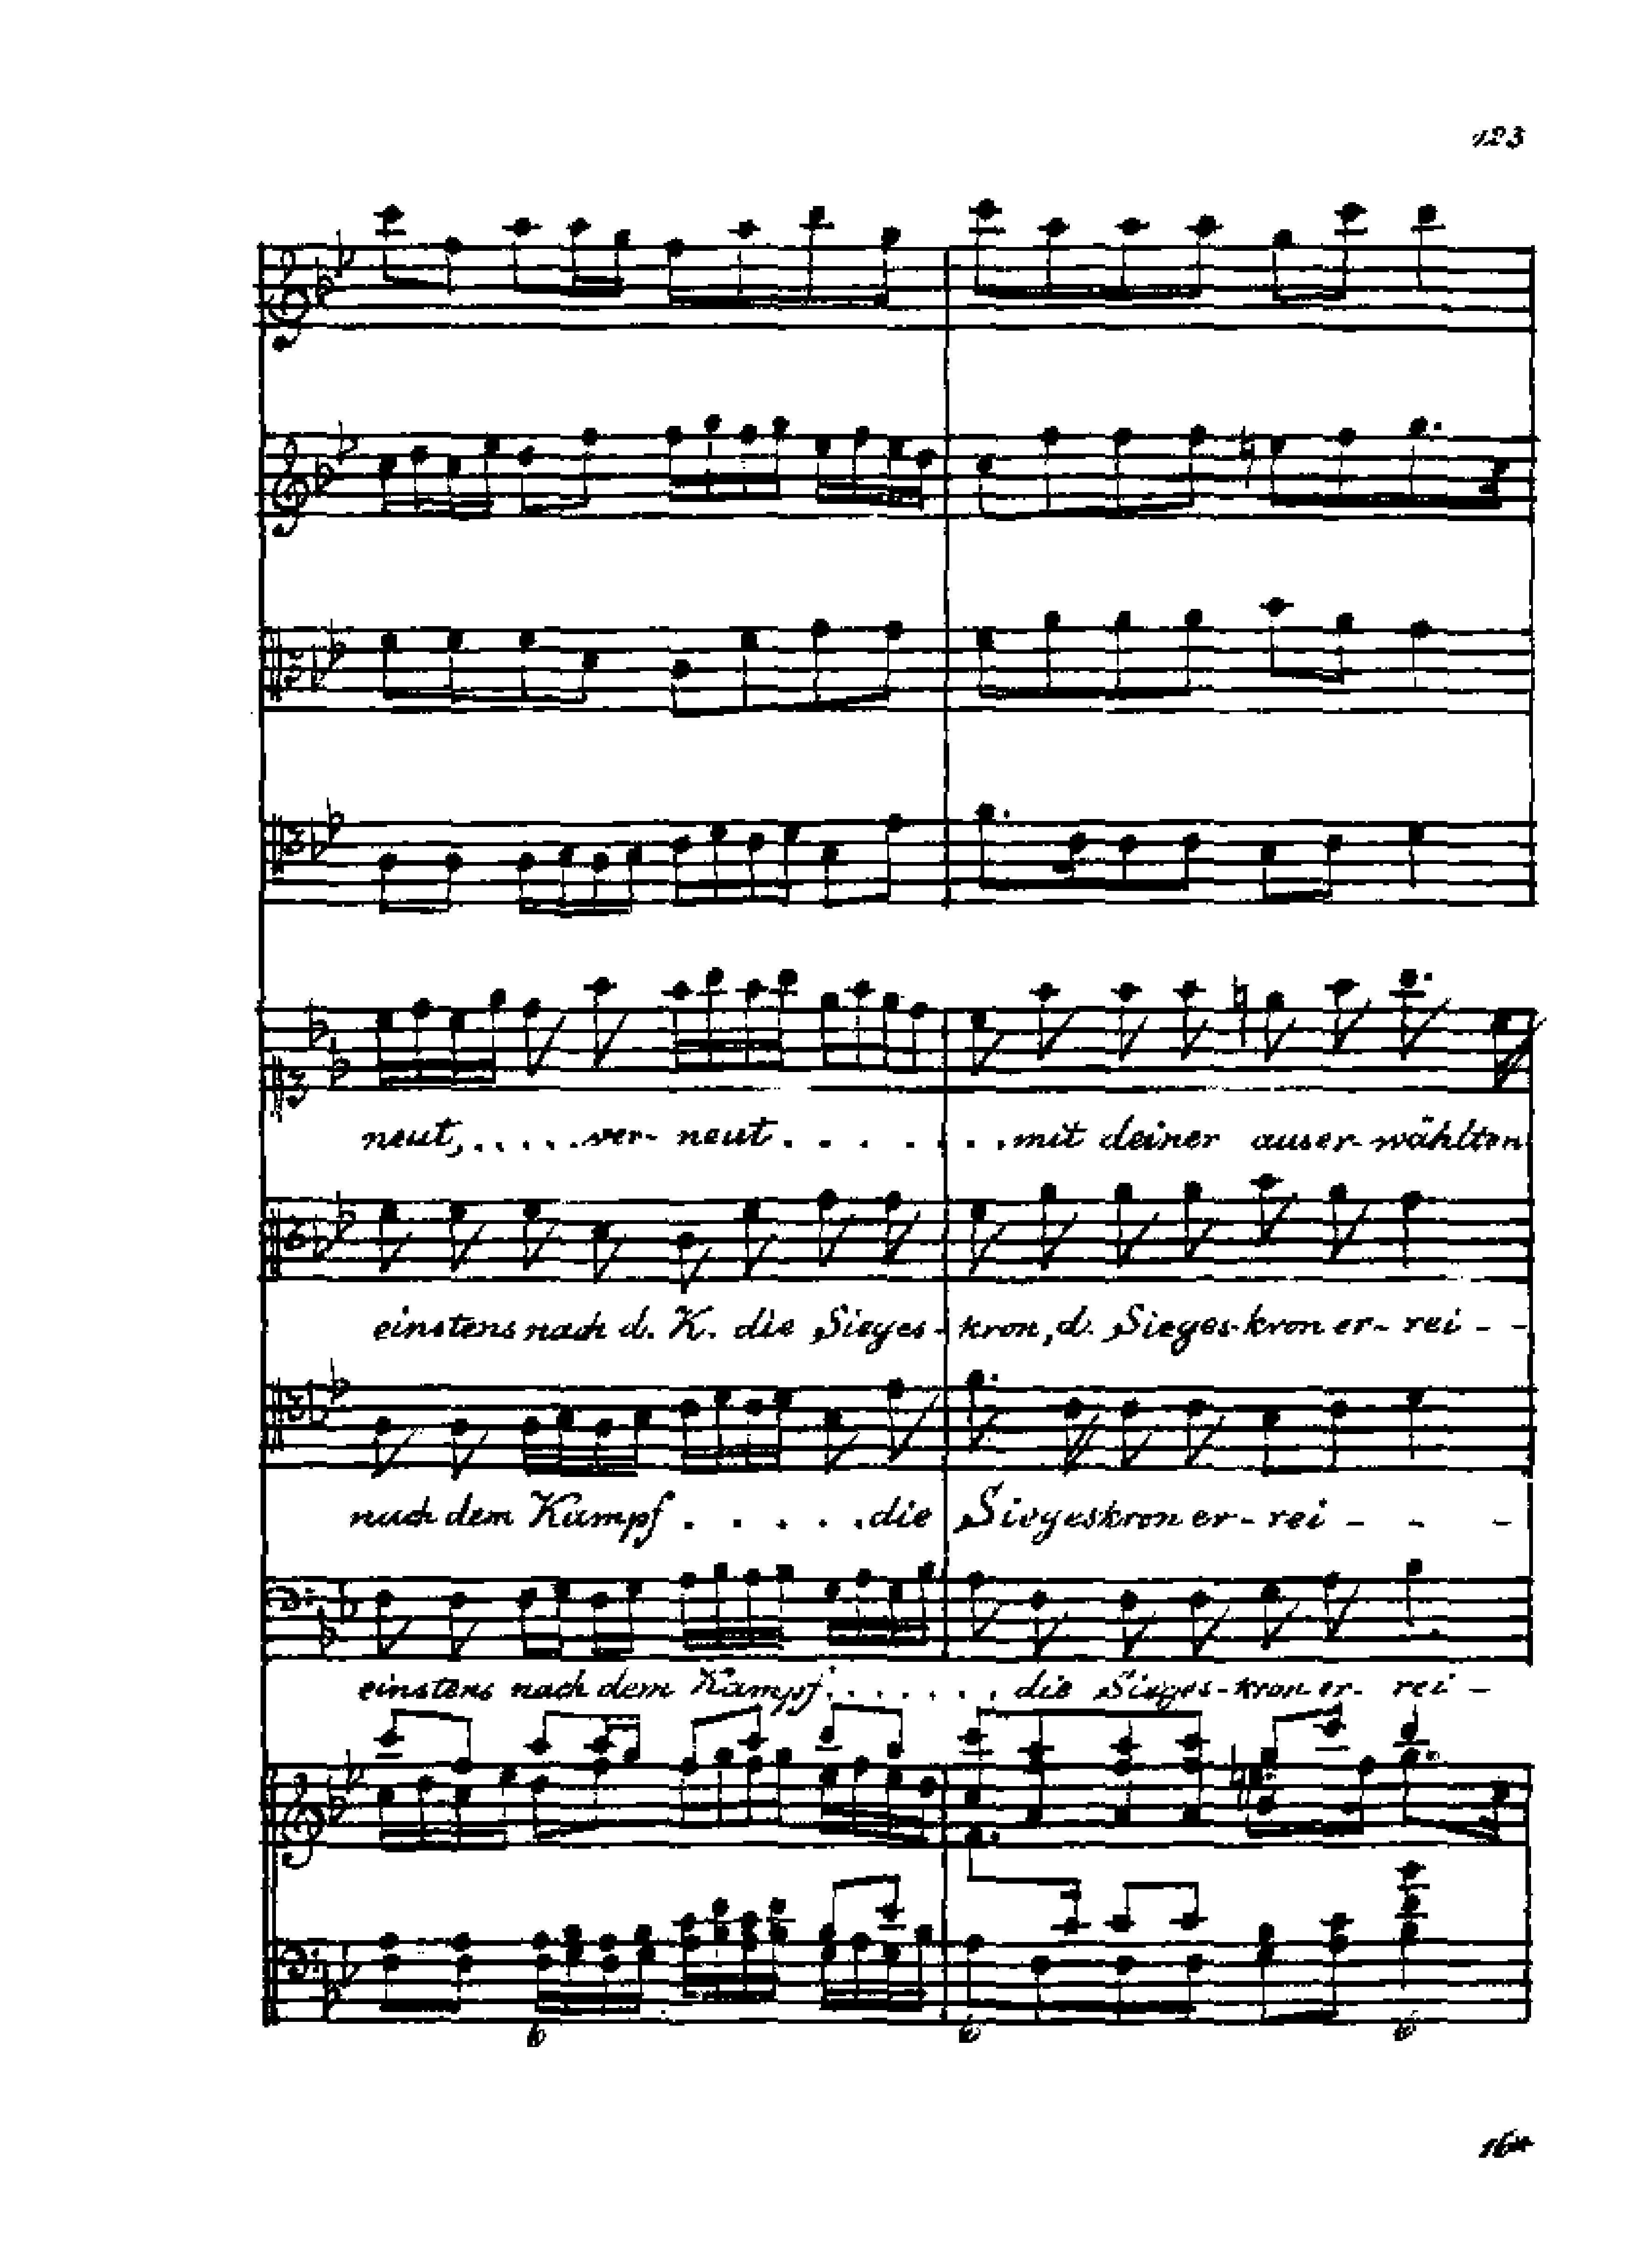 123
neut, . . . . . ver- neut . . . . . . . mit deiner auser- wählten
einstens nach d. K. die Sieges - kron, d. Sieges-kron er- rei - -
nach dem Kampf . . . . . die Siegeskron er- rei - - -
einstens nach dem Kampf . . . . . . . die Sieges-kron er- rei -
6 6 6
16*